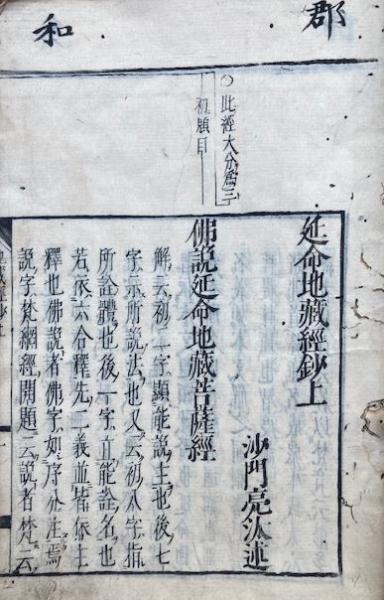 郡
和
○此經大分爲三
初題目
延命地藏經鈔上
沙門亮汰述
佛說延命地藏菩薩經
解云初二字顯能說主也後七
字示所說法也又云初八字指
所詮體也後一字立能詮名也
若依六合釋先二義並皆依主
釋也佛說者佛字如序分注焉
說字梵網經開題云說者梵云